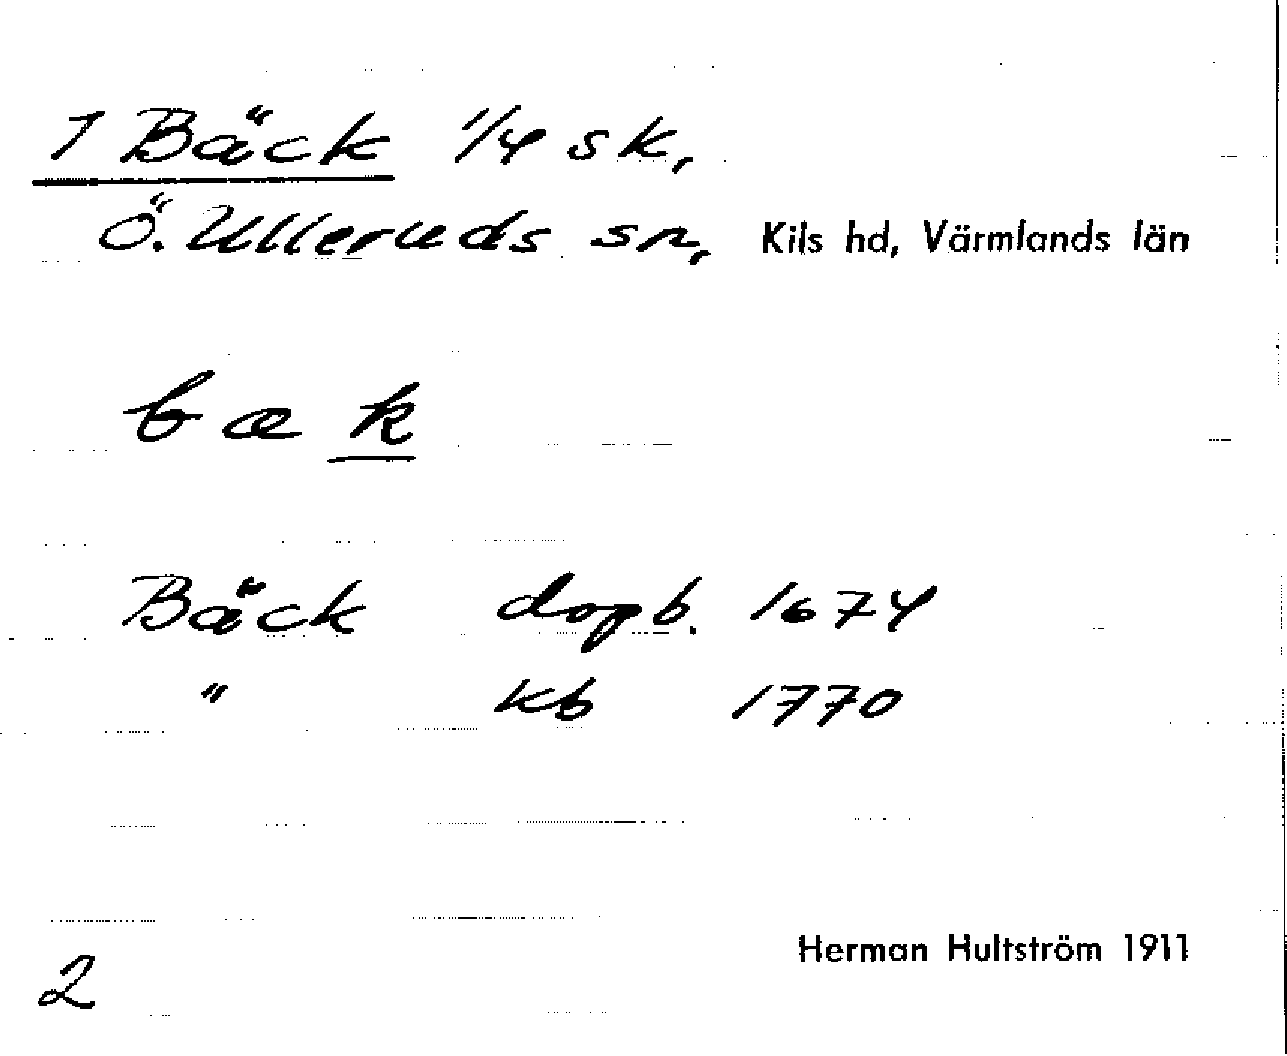 1 Bäck 1/4 sk,
Ö. Ulleruds sn, Kils hd, Värmlands län
bæk
Bäck dopb. 1674
" kb 1770
Herman Hultström 1911
2